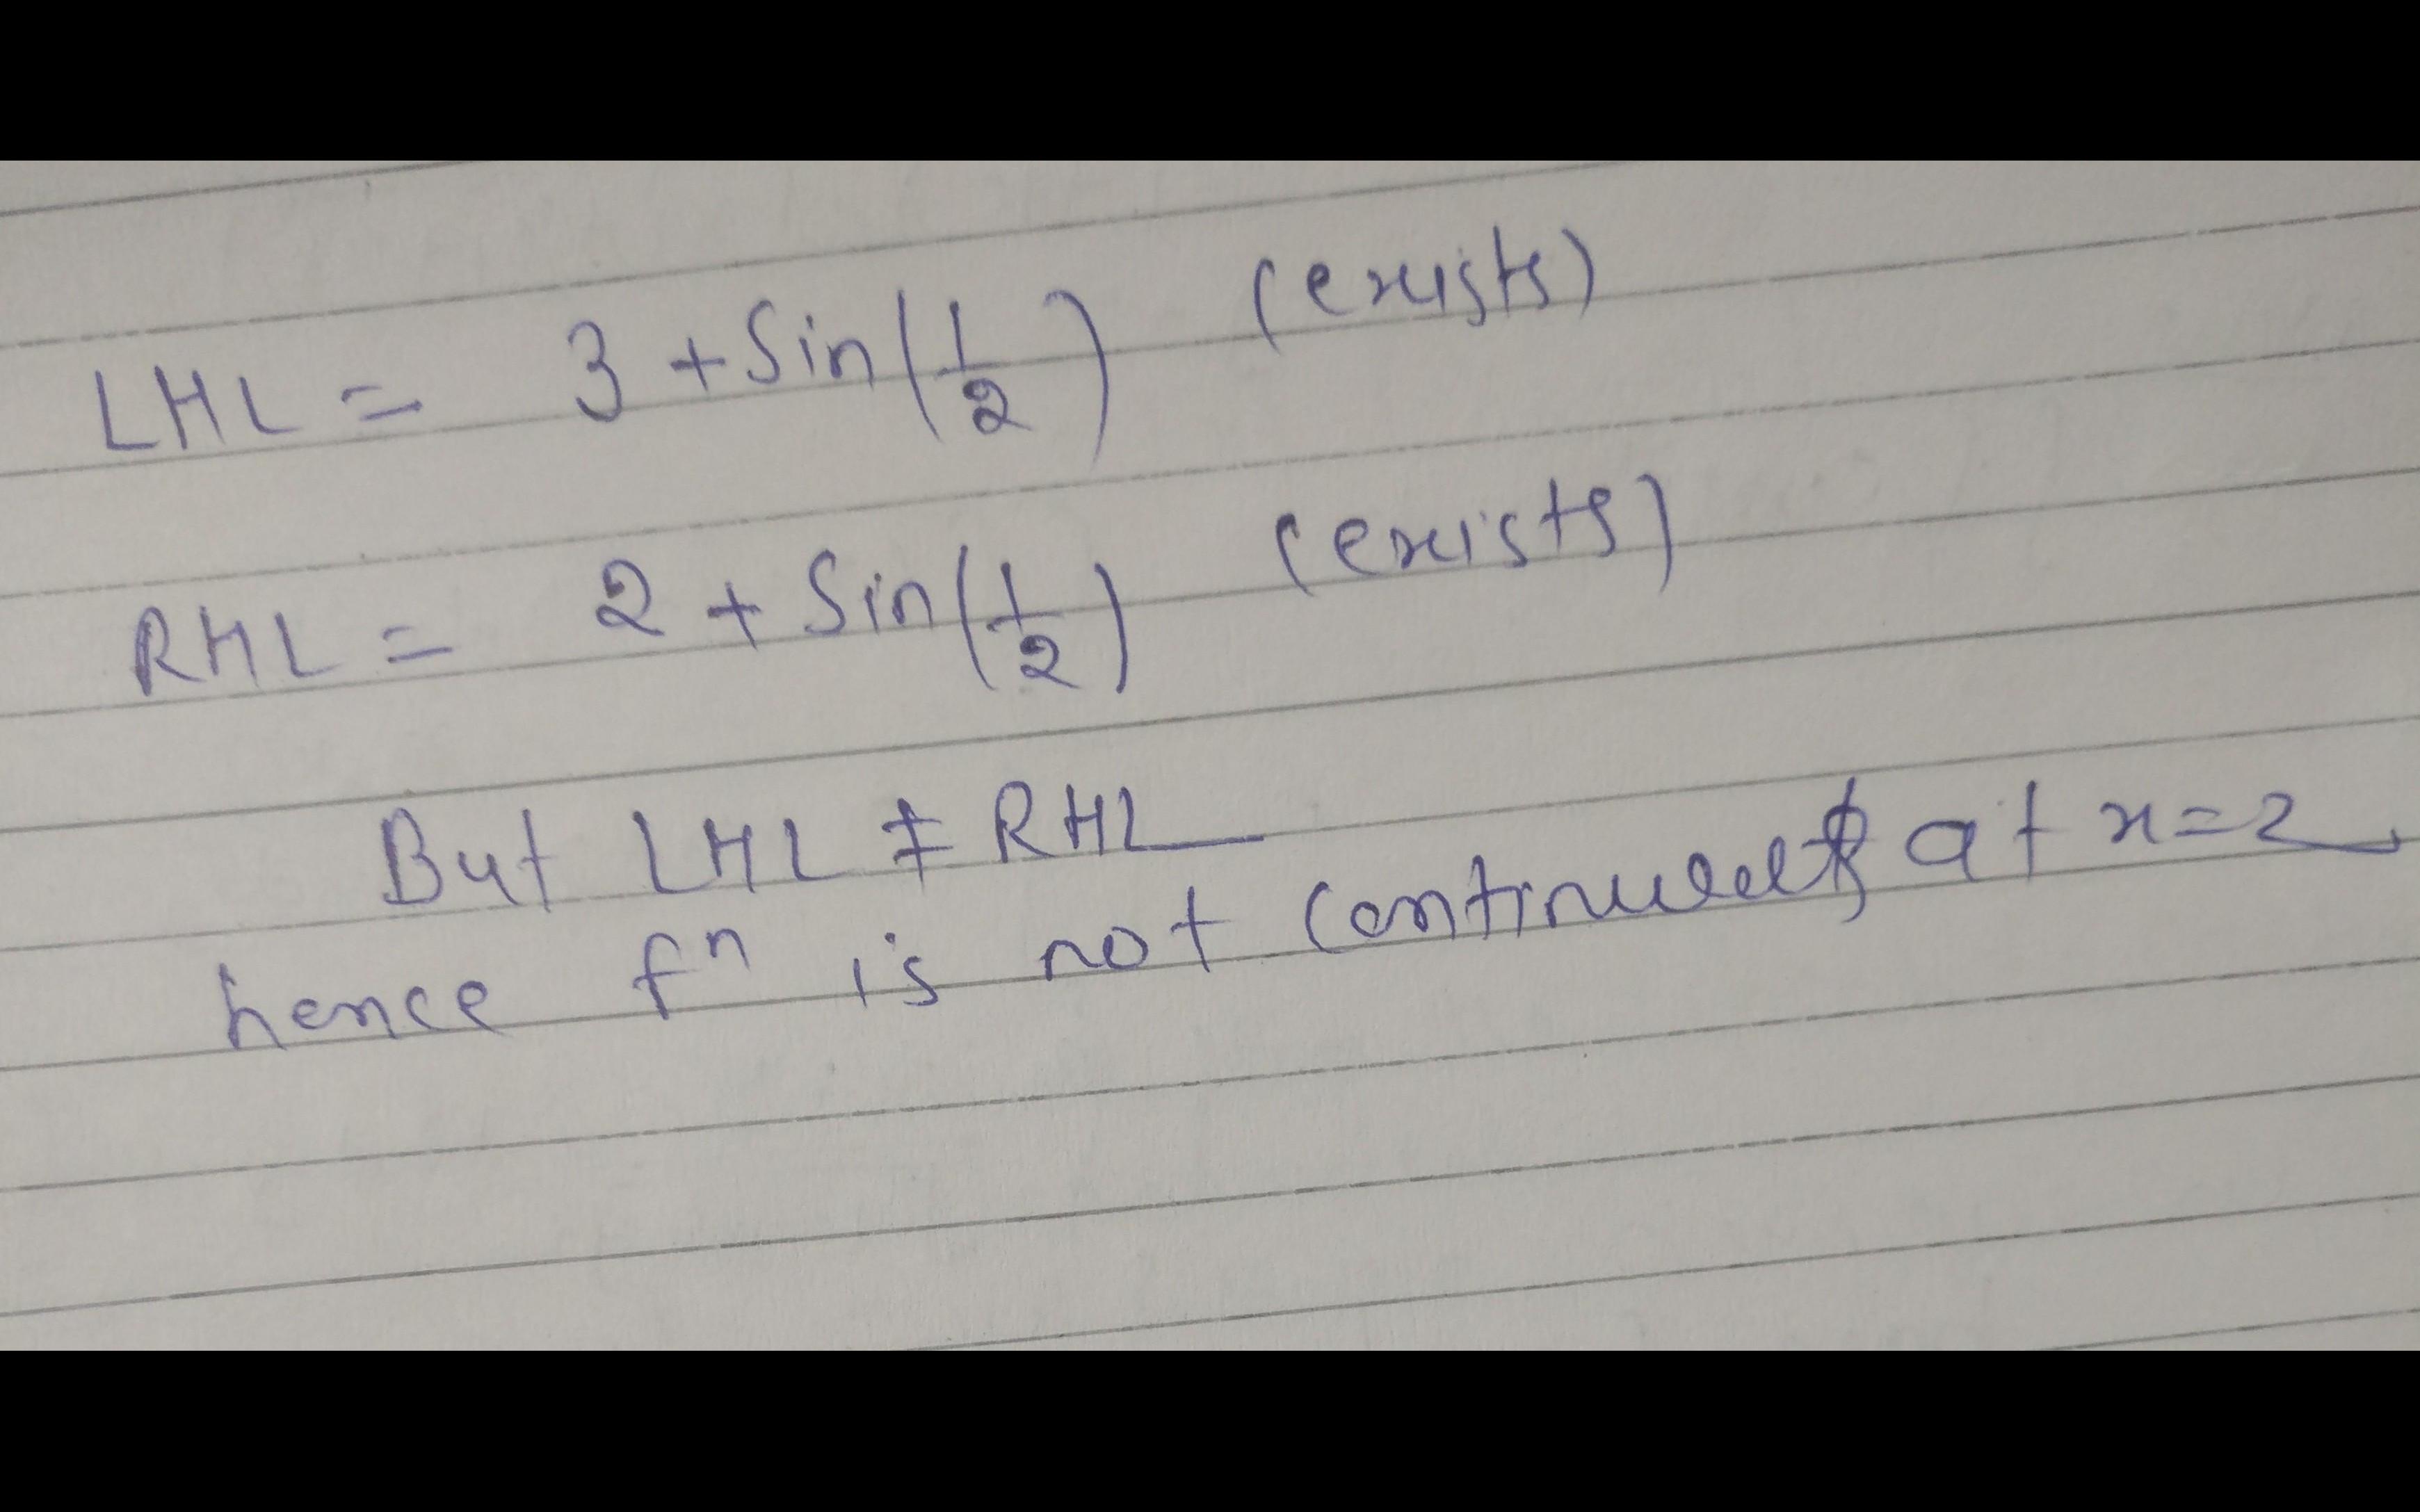 LHL = 3 + Sin(1/2) (exists)
RHL = 2 + Sin(1/2) (exists)
But LHL ≠ RHL
hence fⁿ is not at x=2